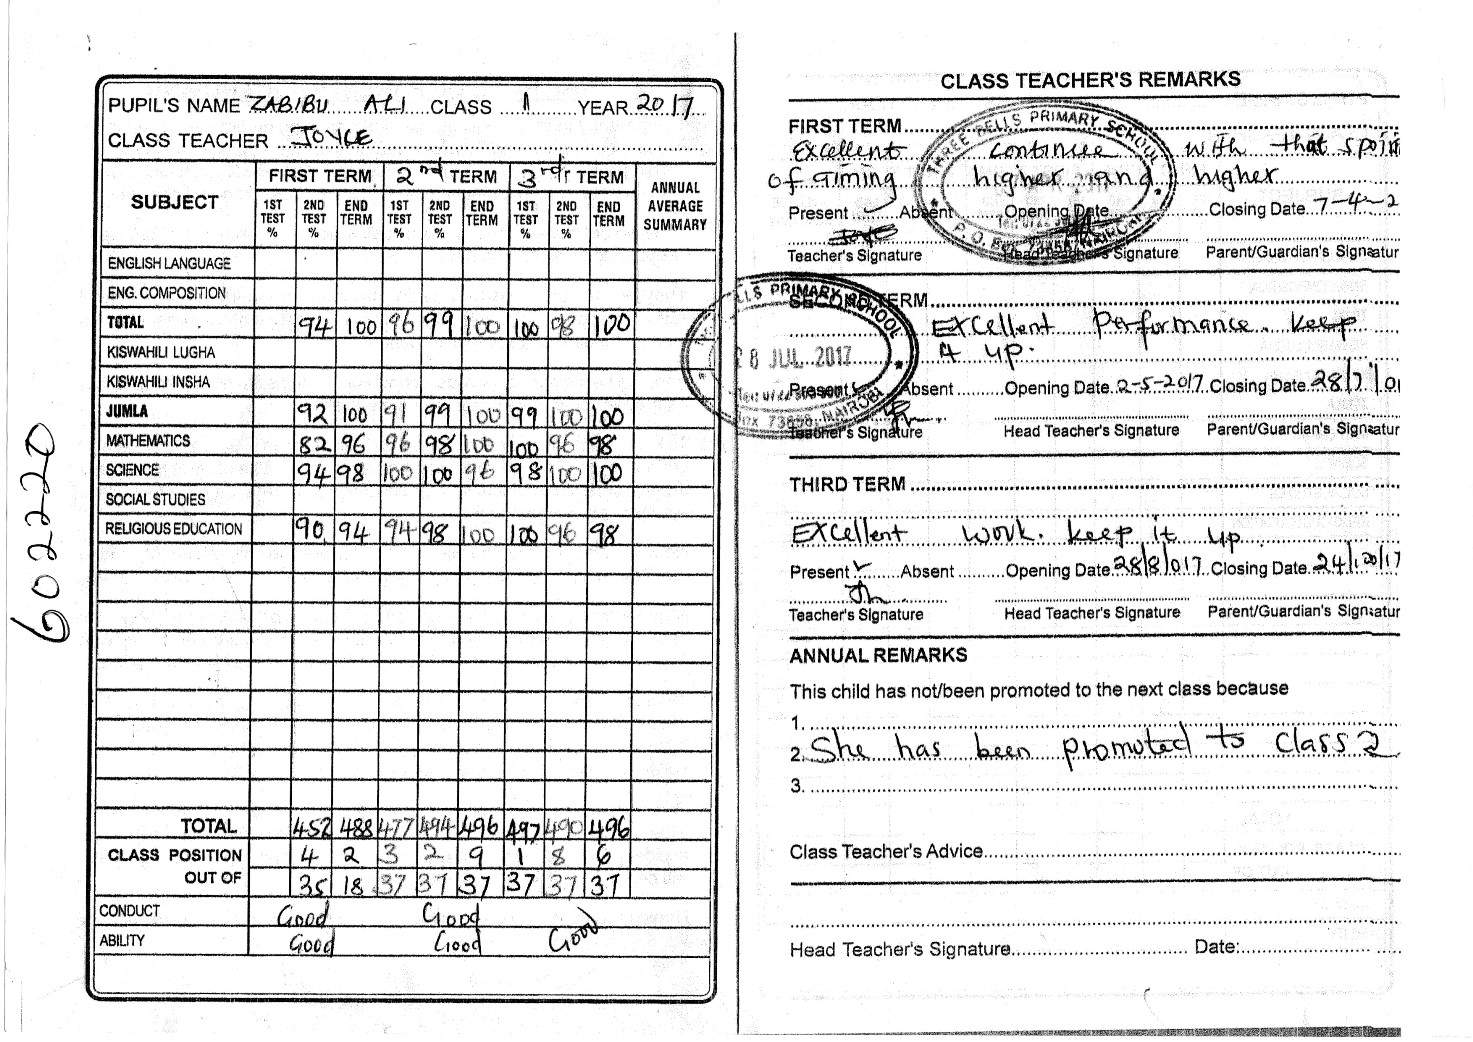 PUPIL'S NAME ZABIBU ALI CLASS 1 YEAR 2017
CLASS TEACHER JOYCE
SUBJECT FIRST TERM 2nd TERM 3rd TERM ANNUAL AVERAGE SUMMARY
1ST TEST % 2ND TEST % END TERM 1ST TEST % 2ND TEST % END TERM 1ST TEST % 2ND TEST % END TERM
ENGLISH LANGUAGE
ENG. COMPOSITION
TOTAL 94 100 96 99 100 100 98 100
KISWAHILI LUGHA
KISWAHILI INSHA
JUMLA 92 100 91 99 100 99 100 100
MATHEMATICS 82 96 96 98 100 100 96 98
SCIENCE 94 98 100 100 96 98 100 100
SOCIAL STUDIES
RELIGIOUS EDUCATION 90 94 94 98 100 100 96 98
TOTAL 452 488 477 494 496 497 490 496
CLASS POSITION 4 2 3 2 9 1 8 6
OUT OF 35 18 37 37 37 37 37 37
CONDUCT Good Good Good
ABILITY Good Good
602220
CLASS TEACHER'S REMARKS
FIRST TERM
Excellent continue with that spirit
of aiming higher and higher
Present Absent Opening Date Closing Date 7-4-2
Teacher's Signature Head Teacher's Signature Parent/Guardian's Signatur
THREE BELLS PRIMARY SCHOOL
P. O. Box 73858, NAIROBI
SECOND TERM
Excellent Performance. keep
it up.
Present Absent Opening Date 2-5-2017 Closing Date 28/7/01
Teacher's Signature Head Teacher's Signature Parent/Guardian's Signatur
BELLS PRIMARY SCHOOL
28 JUL 2017
Box 73858, NAIROBI
THIRD TERM
Excellent work. keep it up
Present Absent Opening Date 28/8/017 Closing Date 24/10/17
Teacher's Signature Head Teacher's Signature Parent/Guardian's Signatur
ANNUAL REMARKS
This child has not/been promoted to the next class because
1.
2. She has been promoted to Class 2
3.
Class Teacher's Advice
Head Teacher's Signature Date: